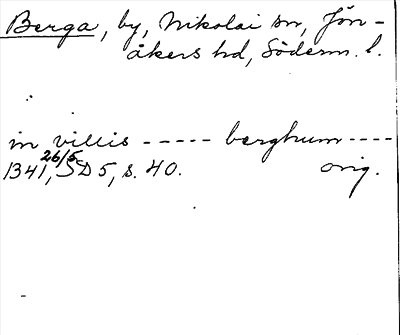 Berga, by, Nikolai sn, Jön-
åkers hd, Söderm. l.
in villis ----- berghum ----
1341 26/5, SD 5, s. 40. orig.